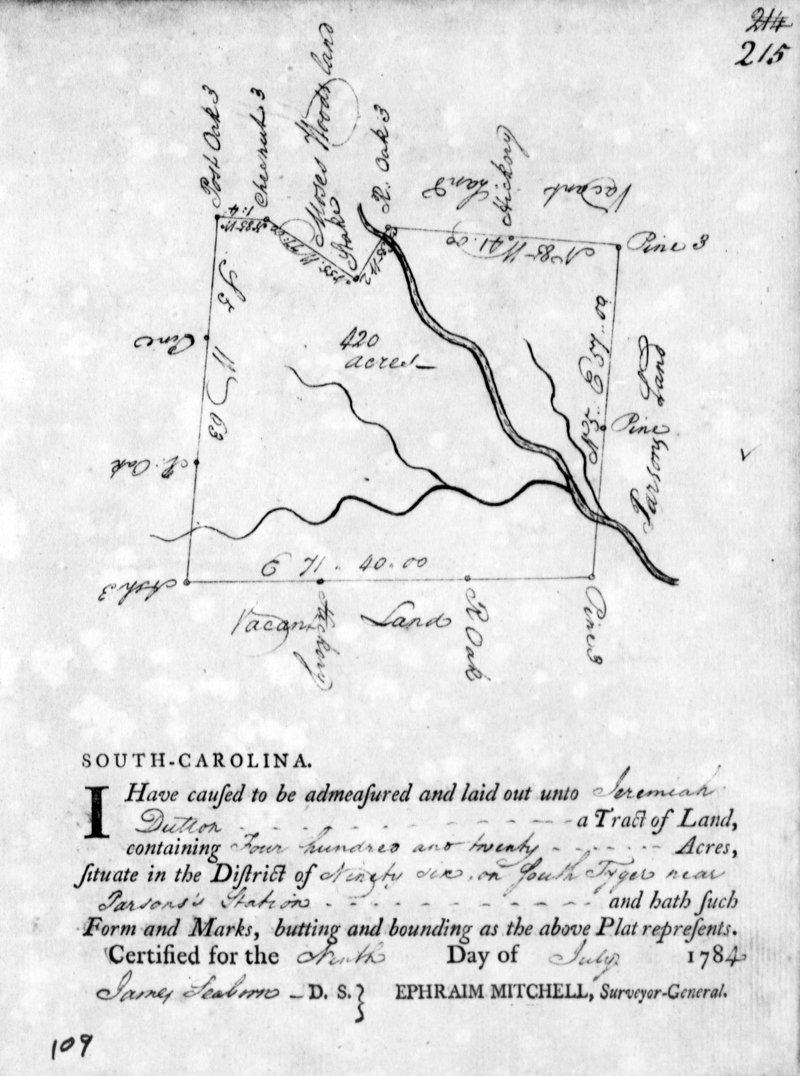 214
215
Post Oak 3
Chesnut 3
Moses Woods land
Stake
R. Oak 3
Hickory
Vacant Land
Pine 3
N 85 W. 41.00
N 5. E 57.00
Pine
Parsons Land
420
acres
Pine
R. Oak
Ash 3
E 71. 40.00
Vacant Land
Hickory
R Oak
Pine 3
SOUTH-CAROLINA.
I Have cauſed to be admeaſured and laid out unto Jeremiah
Dutton a Tract of Land,
containing Four hundred and twenty Acres,
ſituate in the Diſtrict of Ninety six on South Tyger near
Parsons's Station and hath ſuch
Form and Marks, butting and bounding as the above Plat repreſents.
Certified for the Ninth Day of July 1784
James Seaborn D. S. } EPHRAIM MITCHELL, Surveyor-General.
109